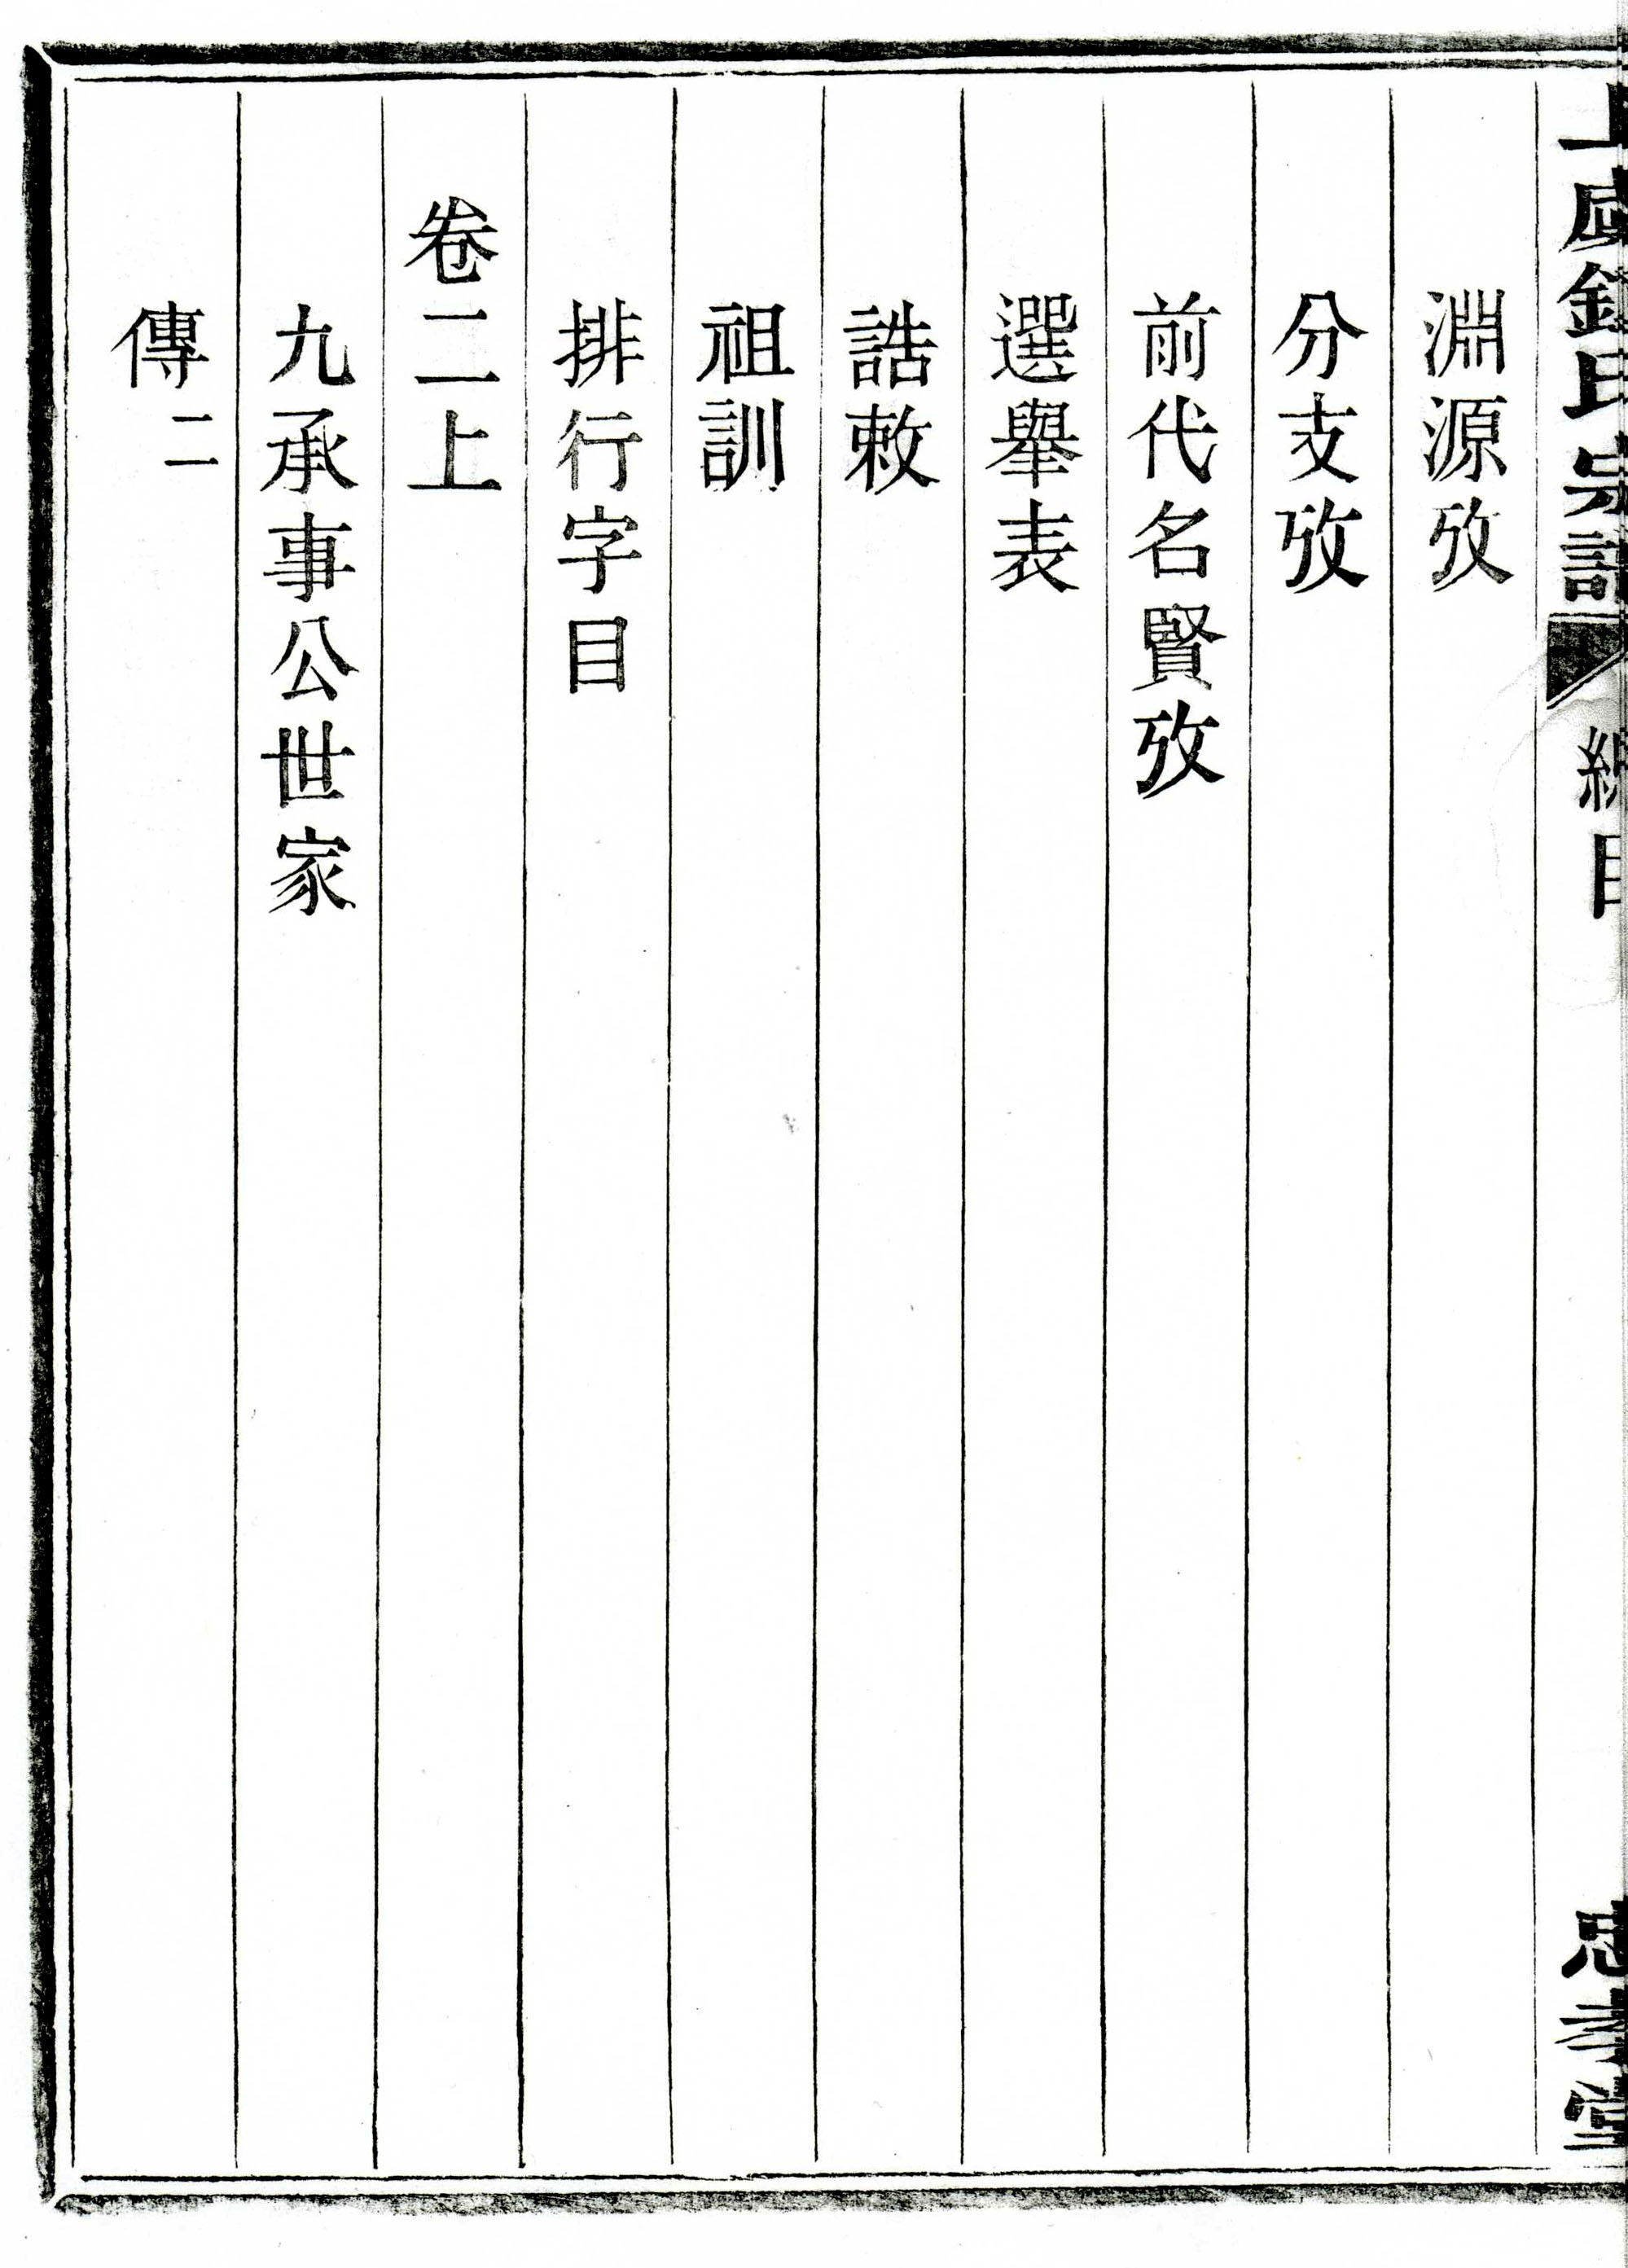 上虞錢氏宗譜 總目 忠孝堂
淵源攷
分支攷
前代名賢攷
選舉表
誥敕
祖訓
排行字目
卷二上
九承事公世家
傳二